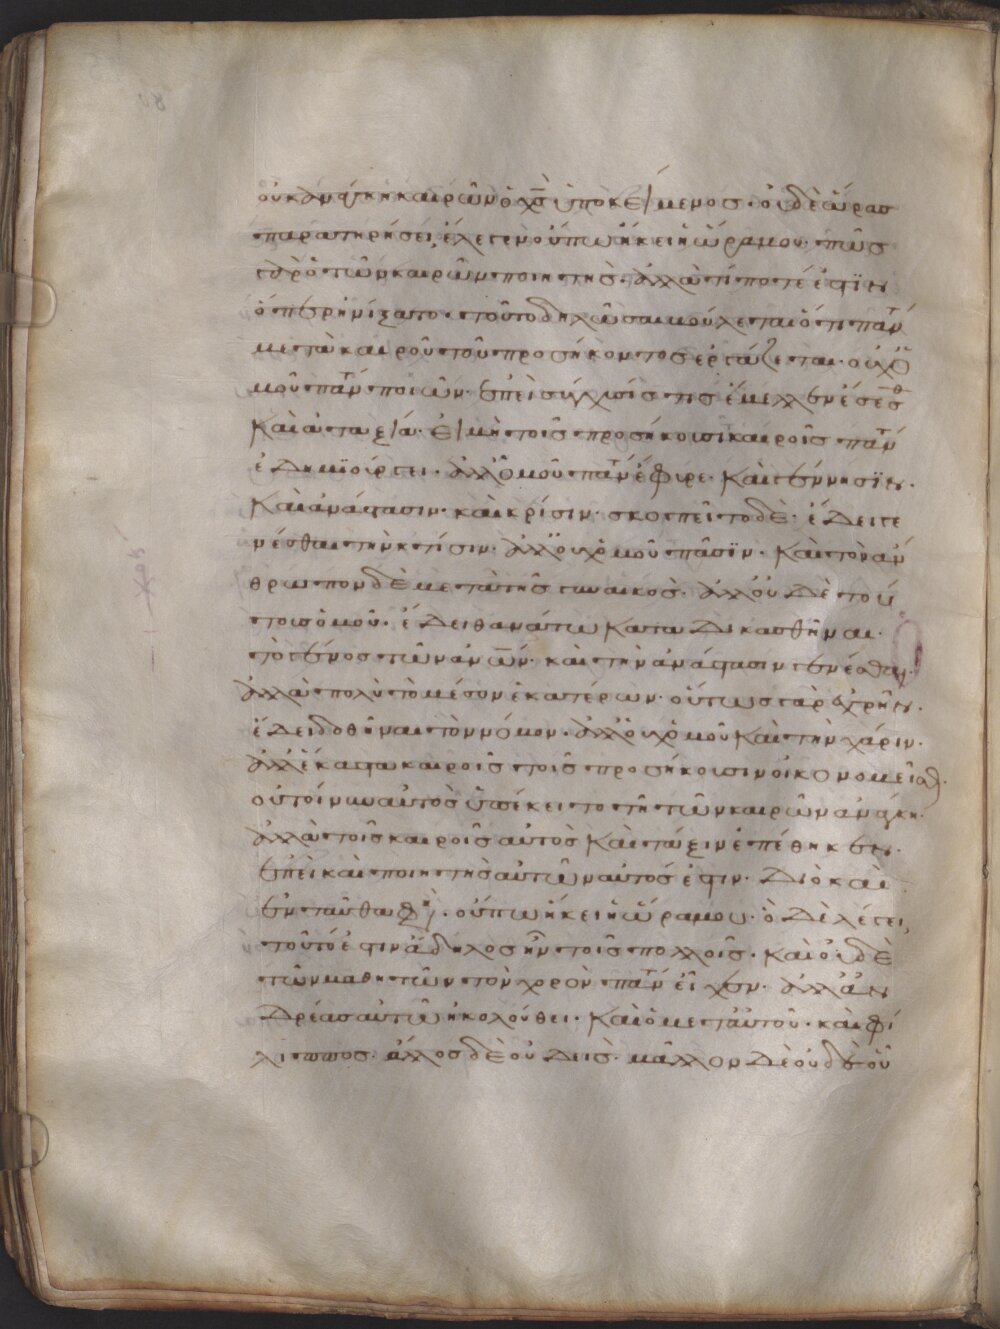 οὐκ ἀνάγκη καιρῶν ὁ χ̅ς̅ ὑποκείμενος· οὐδὲ ὥρας
παρατηρήσει, ἔλεγεν οὔπω ἥκει ἡ ὥρα μου· πῶς
γὰρ ὁ τῶν καιρῶν ποιητής· ἀλλὰ τί ποτέ ἐστϊν
ὅπερ ἠνίξατο· τοῦτο δηλῶσαι βούλεται ὅτι πάντα
μετὰ καιροῦ τοῦ προσήκοντος ἐργάζεται· οὐχ ὁ
μοῦ πάντα ποιῶν· ἐπεὶ σύγχυσίς τις ἔμελλεν ἔσεσθ
καὶ ἀταξία· εἰ μὴ τοῖς προσήκουσι καιροῖς πάντα
ἐδημϊούργει· ἀλλ' ὁμοῦ πάντα ἔφυρε· καὶ γέννησϊν·
καὶ ἀνάστασιν· καὶ κρίσιν· σκόπει τὸ δέ· ἔδει γε
νέσθαι τὴν κτίσιν· ἀλλ' οὐχ ὁμοῦ πᾶσϊν· καὶ τὸν ἄν
θρωπον δὲ μετὰ τῆς γυναικός· ἀλλ' οὐδὲ τού
τους ὁμοῦ· ἔδει θανάτω καταδικασθῆναι·
τὸ γένος τῶν ἀν̅ω̅ν· καὶ τὴν ἀνάστασιν γενέσθαι·
ἀλλὰ πολὺ τὸ μέσον ἑκατέρων· οὕτως γὰρ ἐχρῆν·
ἔδει δοθῆναι τὸν νόμον· ἀλλ' οὐχ ὁμοῦ καὶ τὴν χάριν·
ἀλλ' ἕκαστα καιροῖς τοῖς προσήκουσιν οἰκονομεῖσθ
οὐ τοίνυν αὐτὸς ὑπέκειτο τῇ τῶν καιρῶν ἀνάγκη·
ἀλλὰ τοῖς καιροῖς αὐτὸς καὶ τάξιν ἐπέθηκεν·
ἐπεὶ καὶ ποιητὴς αὐτῶν αὐτός ἐστιν· Διὸ καὶ
ἐνταῦθα φη· οὔπω ἥκει ἡ ὥρα μου· ὃ δὲ λέγει,
τοῦτό ἐστιν ἄδηλος ἦν τοῖς πολλοῖς· καὶ οὐδὲ
τῶν μαθητῶν τὸν χορὸν πάντα εἶχεν· ἀλλ' ἀν
δρέας αὐτῶ ἠκολούθει· καὶ ὁ μετ' αὐτοῦ· καὶ φί
λιππος· ἄλλος δὲ οὐδείς· μᾶλλον δὲ οὐδὲ οὗ